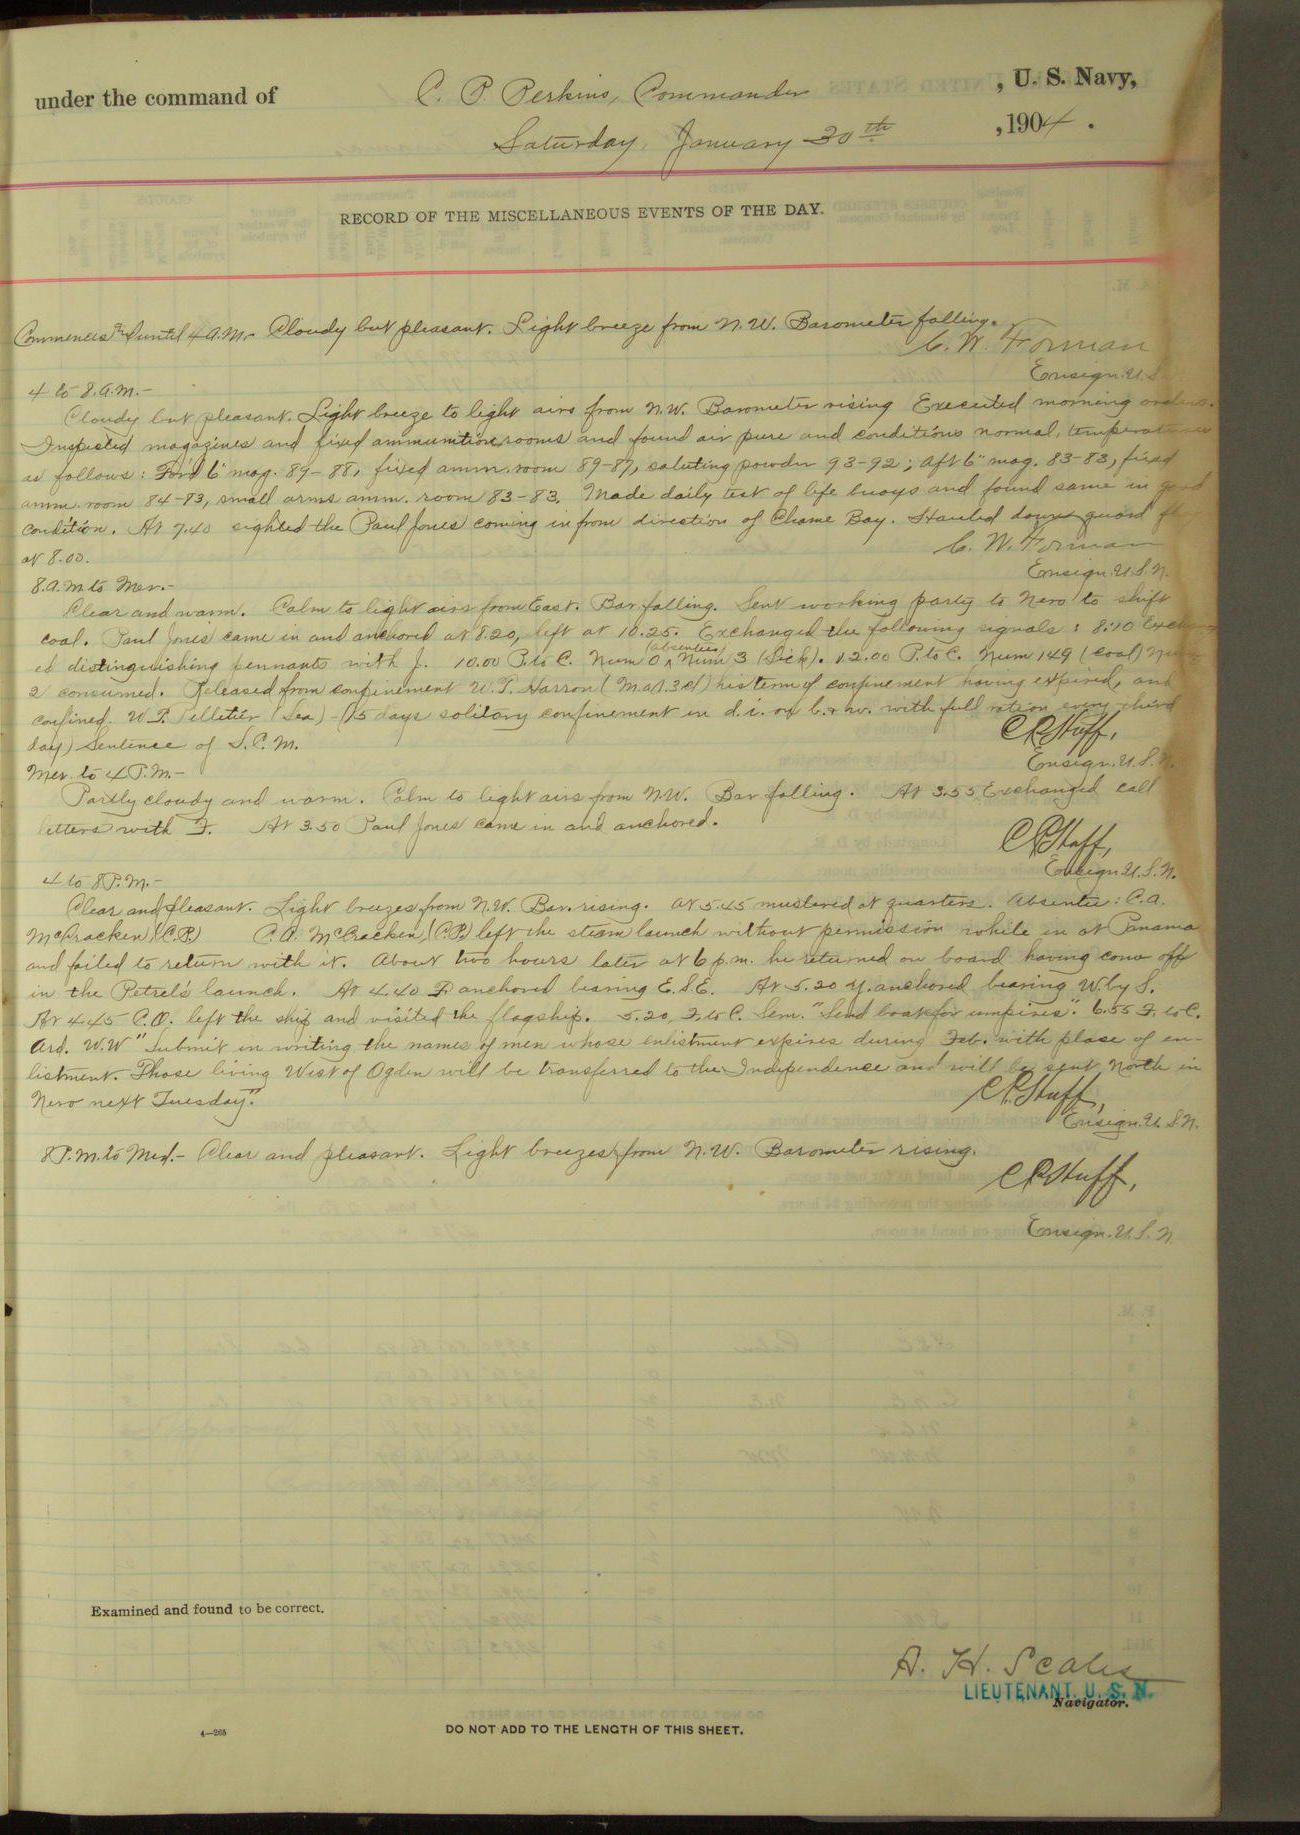 under the command of C. P. Perkins, Commander , U. S. Navy,
Saturday, January 30th , 1904 .
RECORD OF THE MISCELLANEOUS EVENTS OF THE DAY.
Commences and until 4 A.M.- Cloudy but pleasant. Light breeze from N.W. Barometer falling.
C. W. Forman
Ensign. U.S.
4 to 8. A.M.-
Cloudy but pleasant. Light breeze to light airs from N.W. Barometer rising Executed morning orders.
Inspected magazines and fixed ammunition rooms and found air pure and conditions normal, temperatures
as follows: For'd 6" mag. 89-88, fixed amm. room 89-87, saluting powder 93-92; aft 6" mag. 83-83, fixed
amm. room 84-83, small arms amm. room 83-83. Made daily test of life buoys and found same in good
condition. At 7.40 sighted the Paul Jones coming in from direction of Chame Bay. Hauled down guard
at 8.00.
C. W. Forman
Ensign. U.S.N.
8. A.M. to Mer.-
Clear and warm. Calm to light airs from East. Bar falling. Sent working party to Nero to shift
coal. Paul Jones came in and anchored at 8.20, left at 10.25. Exchanged the following signals: 8:10 Exchang
ed distinguishing pennants with J. 10.00 P. to C. Num 0 (absentees) Num 3 (Sick). 12.00 P. to C. Num 149 (coal) Num
2 consumed. Released from confinement W. T. Harron (M.at. 3cl) his term of confinement having expired, and
confined W. P. Pelletier (Sea) - (15 days solitary confinement in d.i. on b. & w. with full ration every third
day) Sentence of S.C.M.
C P Huff,
Ensign. U.S.N.
Mer. to 4 P.M.-
Partly cloudy and warm. Calm to light airs from N.W. Bar falling. At 3.55 Exchanged call
letters with F. At 3.50 Paul Jones came in and anchored.
C P Huff,
Ensign. U.S.N.
4 to 8 P.M.-
Clear and pleasant. Light breezes from N.W. Bar. rising. At 5.45 mustered at quarters. Absentee: C.A.
McCracken, (C.P.) C.A. McCracken, (C.P.) left the steam launch without permission while in at Panama
and failed to return with it. About two hours later at 6 p.m. he returned on board having come off
in the Petrel's launch. At 4.40 F. anchored bearing E.S.E. At 5.20 Y. anchored bearing W. by S.
At 4.45 C.O. left the ship and visited the flagship. 5.20, F. to C. Sem. "Send boat for umpires". 6.55 F. to C.
Ard. W.W "Submit in writing the names of men whose enlistment expires during Feb. with place of en-
listment. Those living West of Ogden will be transferred to the Independence and will be sent North in
Nero next Tuesday."
C P Huff,
Ensign. U.S.N.
8 P.M. to Mid.- Clear and pleasant. Light breezes from N.W. Barometer rising.
C P Huff,
Ensign. U.S.N.
Examined and found to be correct.
A. H. Scales
LIEUTENANT. U. S. N.
Navigator.
4—265
DO NOT ADD TO THE LENGTH OF THIS SHEET.